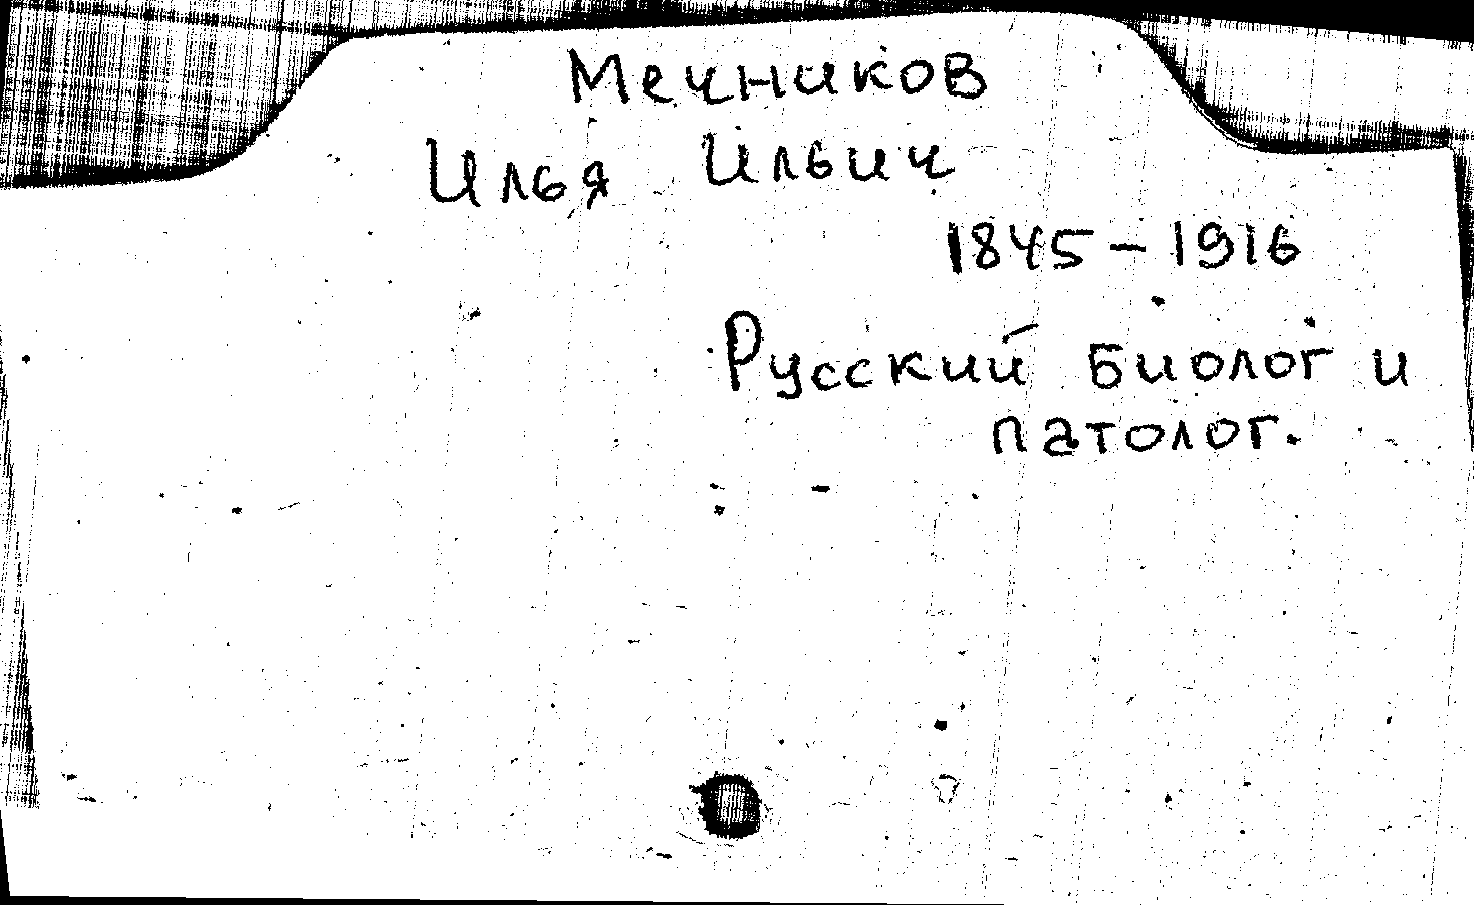 Мечников
Илья Ильич
1845 – 1916
Русский биолог и
патолог.